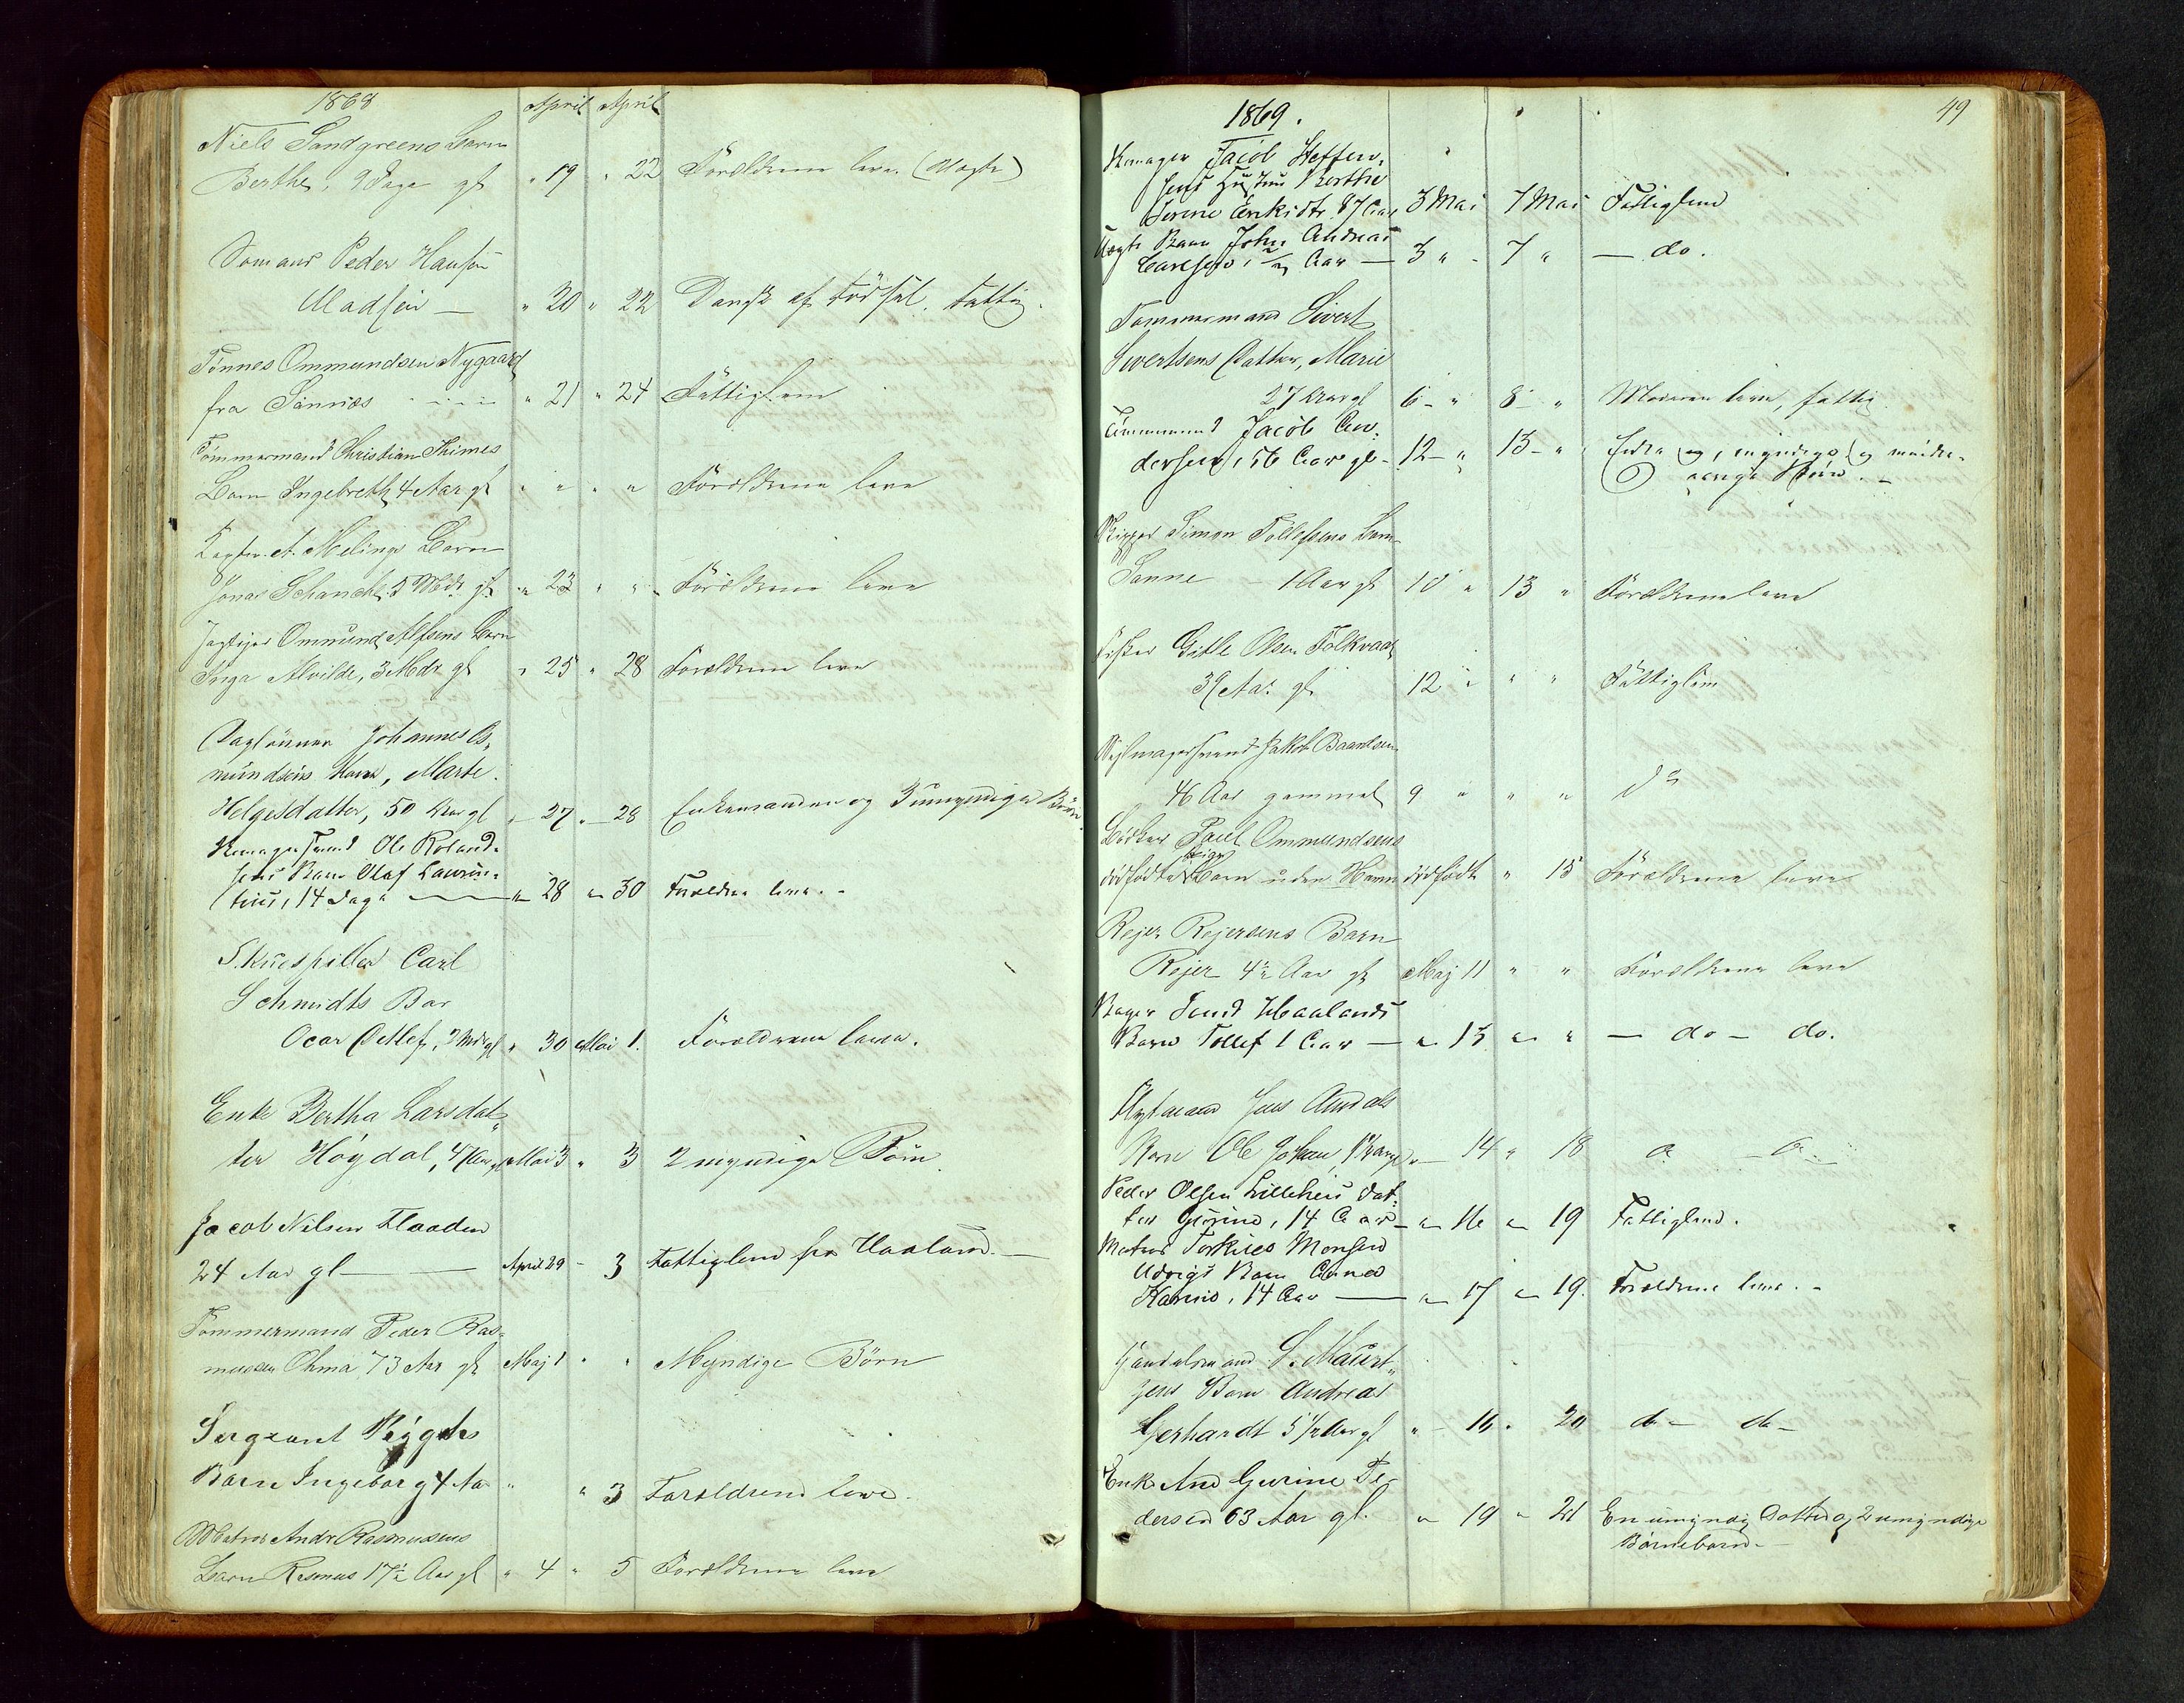 1868 April April
Niels Sandgreens Barn
Berthe, 9 Dage gl " 19 " 22 Forældrene leve. (Uægte)
Sømand Peder Hansen
Madsen — " 20 " 22 Dansk af Fødsel. fattig.
Tønnes Ommundsen Nygaard
fra Sannæs " 21 " 24 Fattiglem
Tømmermand Christian Thimes
Barn Ingebreth 4 Aar gl " " " " Forældrene leve
A. Melings Barn
Jonas Schanche 5 Mdr gl " 23 " " Forældrene leve
Ommund Alfsens Barn
Inga Alvilde, 3 Mdr gl " 25 " 28 Forældrene leve
Daglønner Johannes As-
mundsens Kone, Marte
Helgesdatter, 50 Aar gl " 27 " 28 Enkemanden og 3 umyndige Børn
Skomagersvend Ole Roland-
sens Barn Olaf Laurin-
tius, 14 Dage — " 28 " 30 Forældre leve. -
Skuespiller Carl
Schmidts Bar
Ocar Detlef, 2 Mdr gl " 30 Mai 1. Forældrene leve.
Enke Bertha Larsdat-
ter Høgdal, 47 Aar gl Mai 3 " 3 2 myndige Børn
Jacob Nilsen Flaaden
24 Aar gl — April 29 - 3 Fattiglem fra Haaland. —
Tømmermand Peder Ras-
mussen Ohma 73 Aar gl Maj 1 " " Myndige Børn
Sergeant
Barn Ingeborg 4 Aa " " 3 Forældrene leve.
Matros Andr Rasmussens
Barn Rasmus 17½ Aar gl " 4 " 5 Forældrene leve
1869. 49
Skomager Jacob Steffen-
sens Hustru Berthe
Serine Eriksdtr. 87 Aar 3 Mai 7 Mai Fattiglem
Uægte Barn John Andreas
Carlsen, Aar — 3 " - 7 " — do.
Tømmermand Sivert
Sivertsens Datter, Marie
27 Aar gl 6 - " 8 - " Moderen leve, fattig.
Tømmermand Jacob An-
dersen, 56 Aar gl - 12 - " 13 - " Enke og, myndige og minder-
aarige Børn. -
Skipper Simon Tollefsens Barn
Sanne - 1 Aar gl 10 " 13 " Forældrene leve
Fisker Gitle Olsen Folkvad
39 Aar gl. 12 " " " Fattiglem
Seilmagersvend Jakob Baardsen
46 Aar gammel 9 " " " do
Bødker Poul Ommundsens
dødfødte Pige Barn uden Navn dødfødt " 15 Forældrene leve
Rejer Rejersens Barn
Rejer 4½ Aar gl Maj 11 " " Forældrene leve
Bager Haalands
Barn Tollef 1 Aar — " 13 " " — do — do.
Jens
Barn Ole Johan, " 14 " 18
Peder Olsen Lilleheis Dat-
ter Gurine, 14 Aar — " 16 " 19 Fattiglem.
Matros Torkild Monsen
Udvigs Barn Anna
Karine, 14 Aar — " 17 " 19. Forældrene leve. -
Handelsmand S. Maurit-
zens Barn Andreas
Gerhardt 5½ Aar gl " - 16 " 20 do — do —
Enke Ane Gurine Pe-
dersen 63 Aar gl. " 19 " 21 En umyndig Datter og 2 umyndige
Børnebørn. —